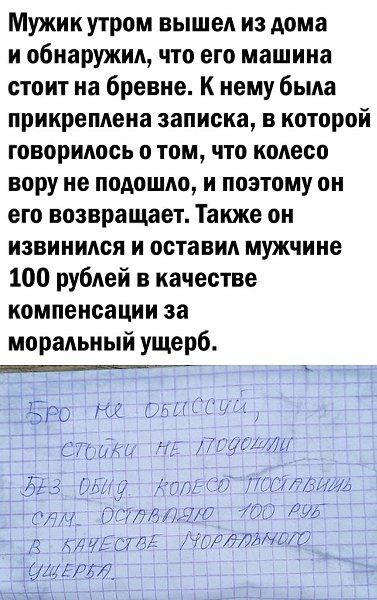 Мужик утром вышел из дома
и обнаружил, что его машина
стоит на бревне. К нему была
прикреплена записка, в которой
говорилось о том, что колесо
вору не подошло, и поэтому он
его возвращает. Также он
извинился и оставил мужчине
100 рублей в качестве
компенсации за
моральный ущерб.
БРО НЕ ОБИССУЙ,
СТОЙКИ НЕ ПОДОШЛИ
БЕЗ ОБИД. КОЛЕСО ПОСТАВИШЬ
САМ. ОСТАВЛЯЮ 100 РУБ
В КАЧЕСТВЕ МОРАЛЬНОГО
УЩЕРБА.